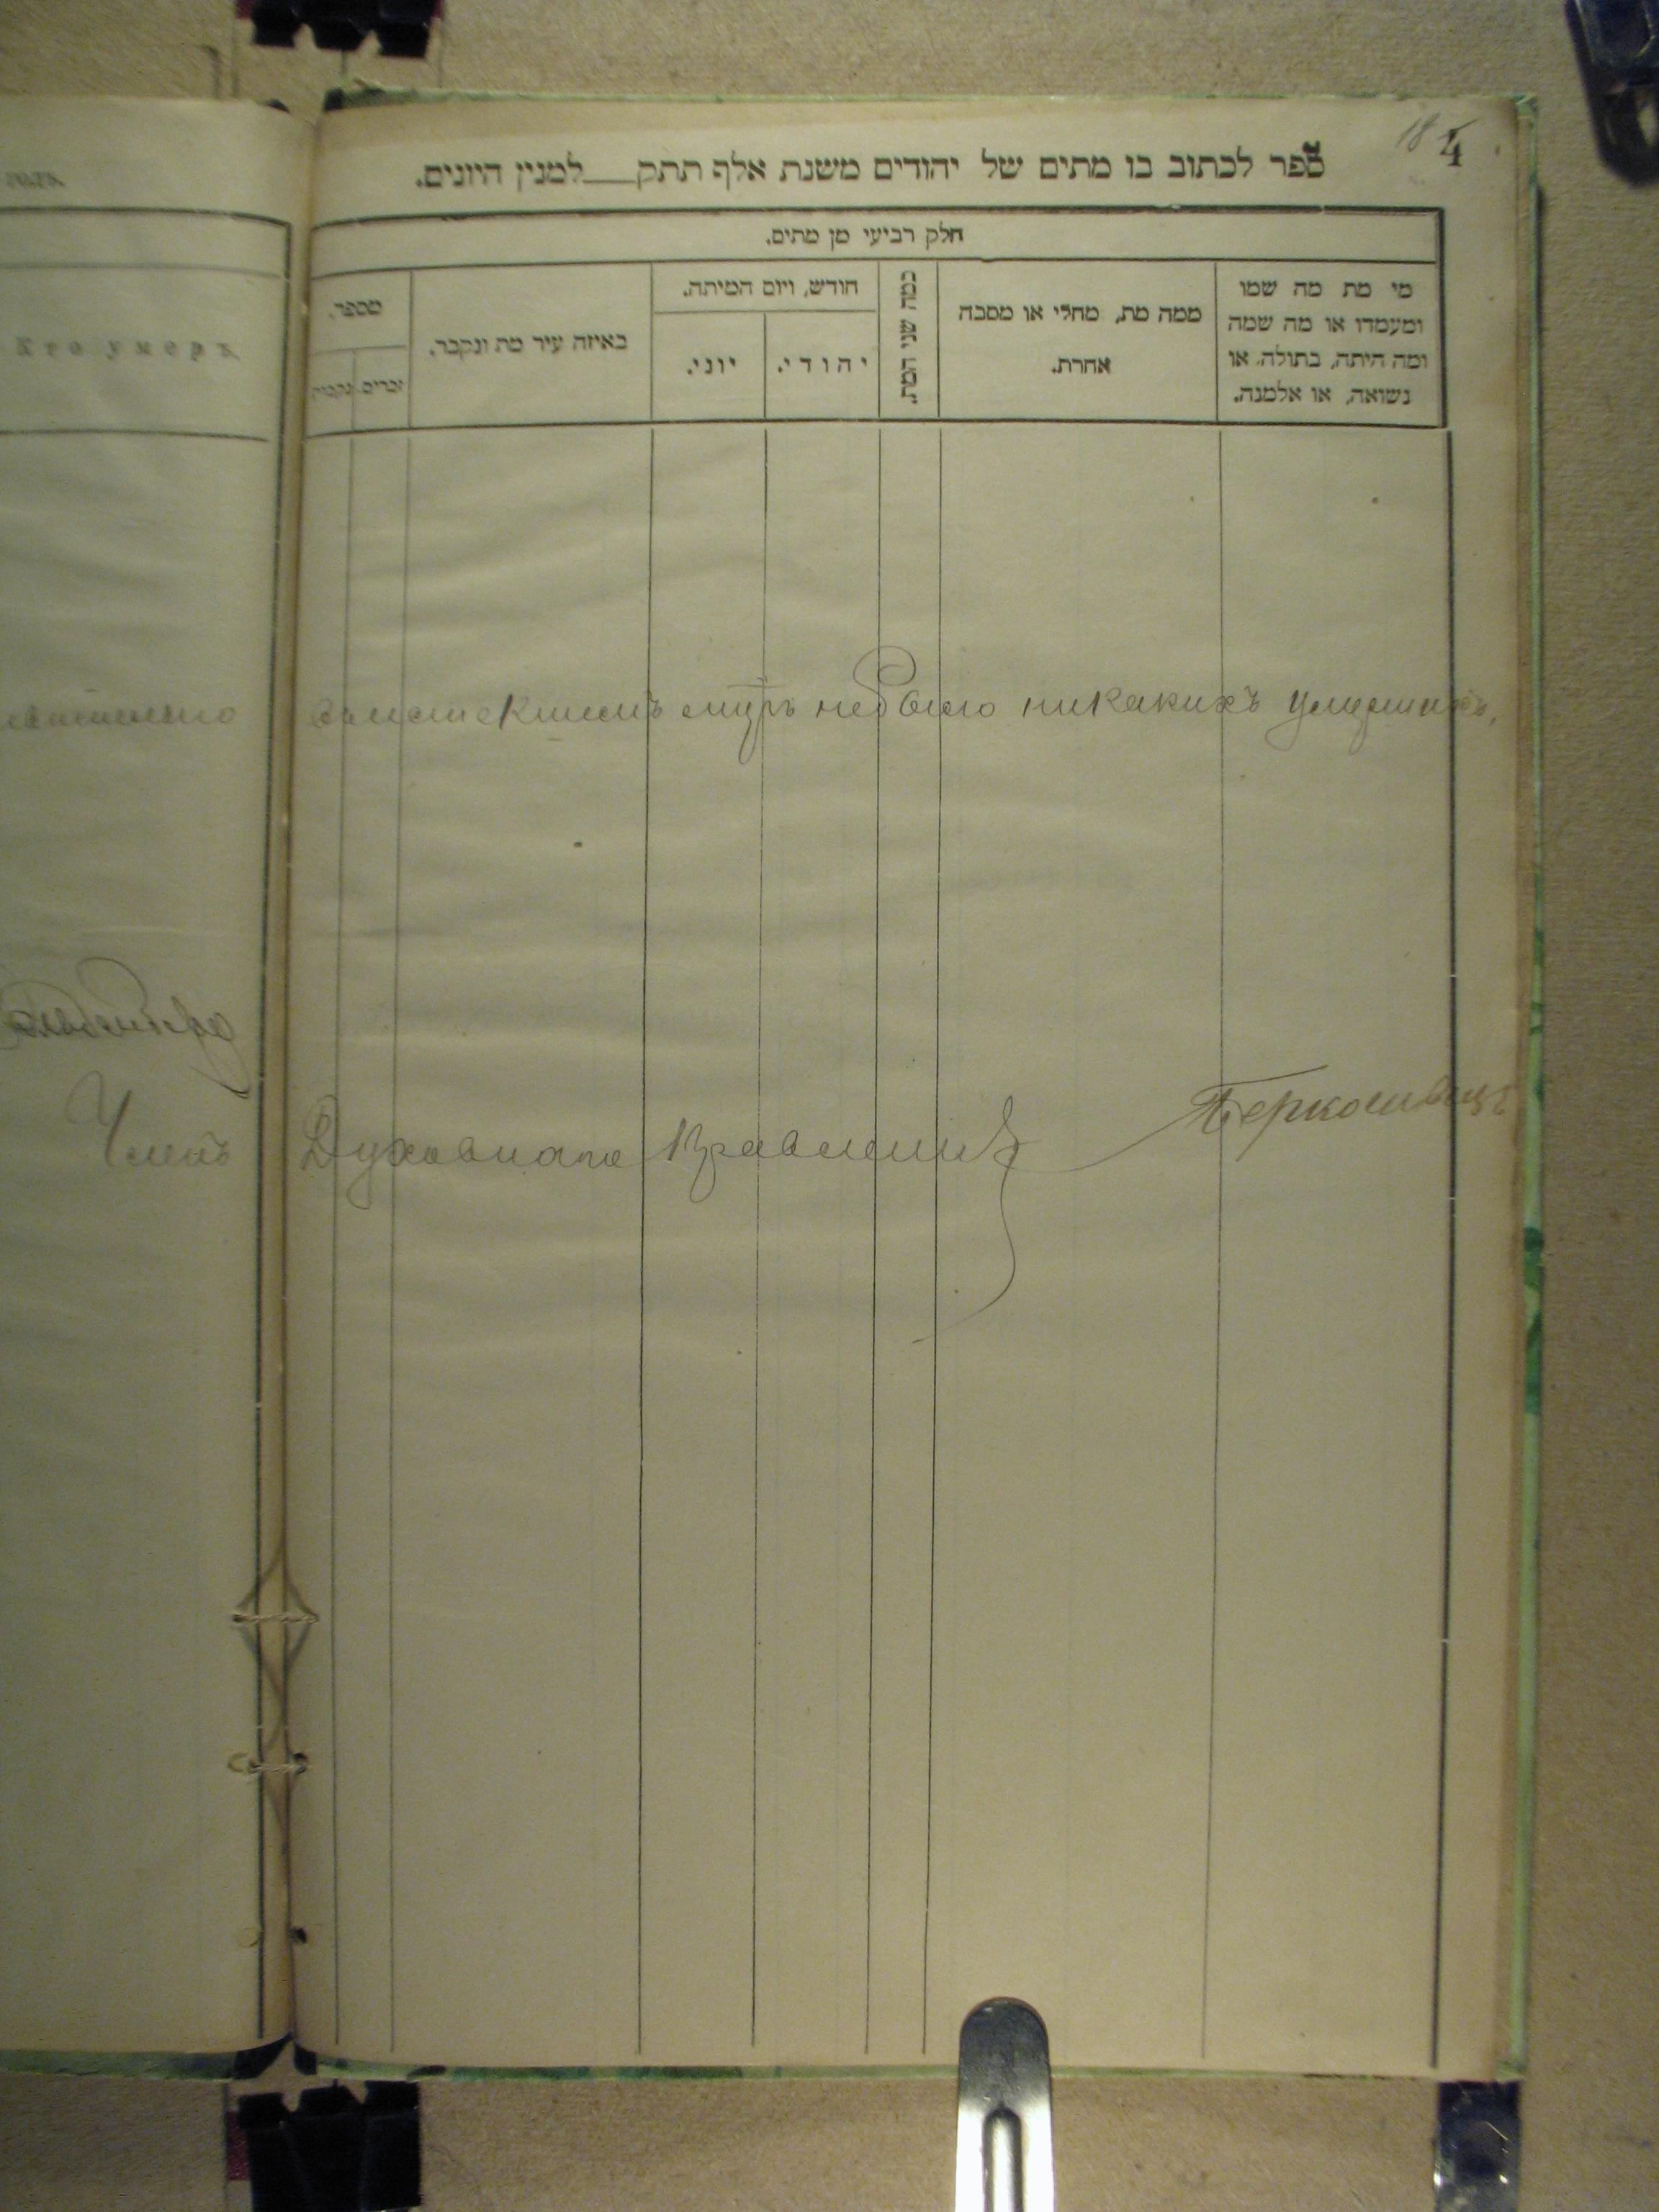 18 4
ספר לכתוב בו מתים של יהודים משנת אלף תתק___למנין היונים.
חלק רביעי מן מתים.
מי מת מה שמו
ומעמדו או מה שמה
ומה היתה, בתולה, או
נשואה, או אלמנה.
ממה מת, מחלי או מסבה
אחרת.
כמה שני המת.
חודש, ויום המיתה.
יהודי.
יוני.
באיזה עיר מת ונקבר.
מספר.
זכרים.
נקבות
Кто умеръ.
небыло никакихъ умершихъ,
Членъ Духовнаго Правления